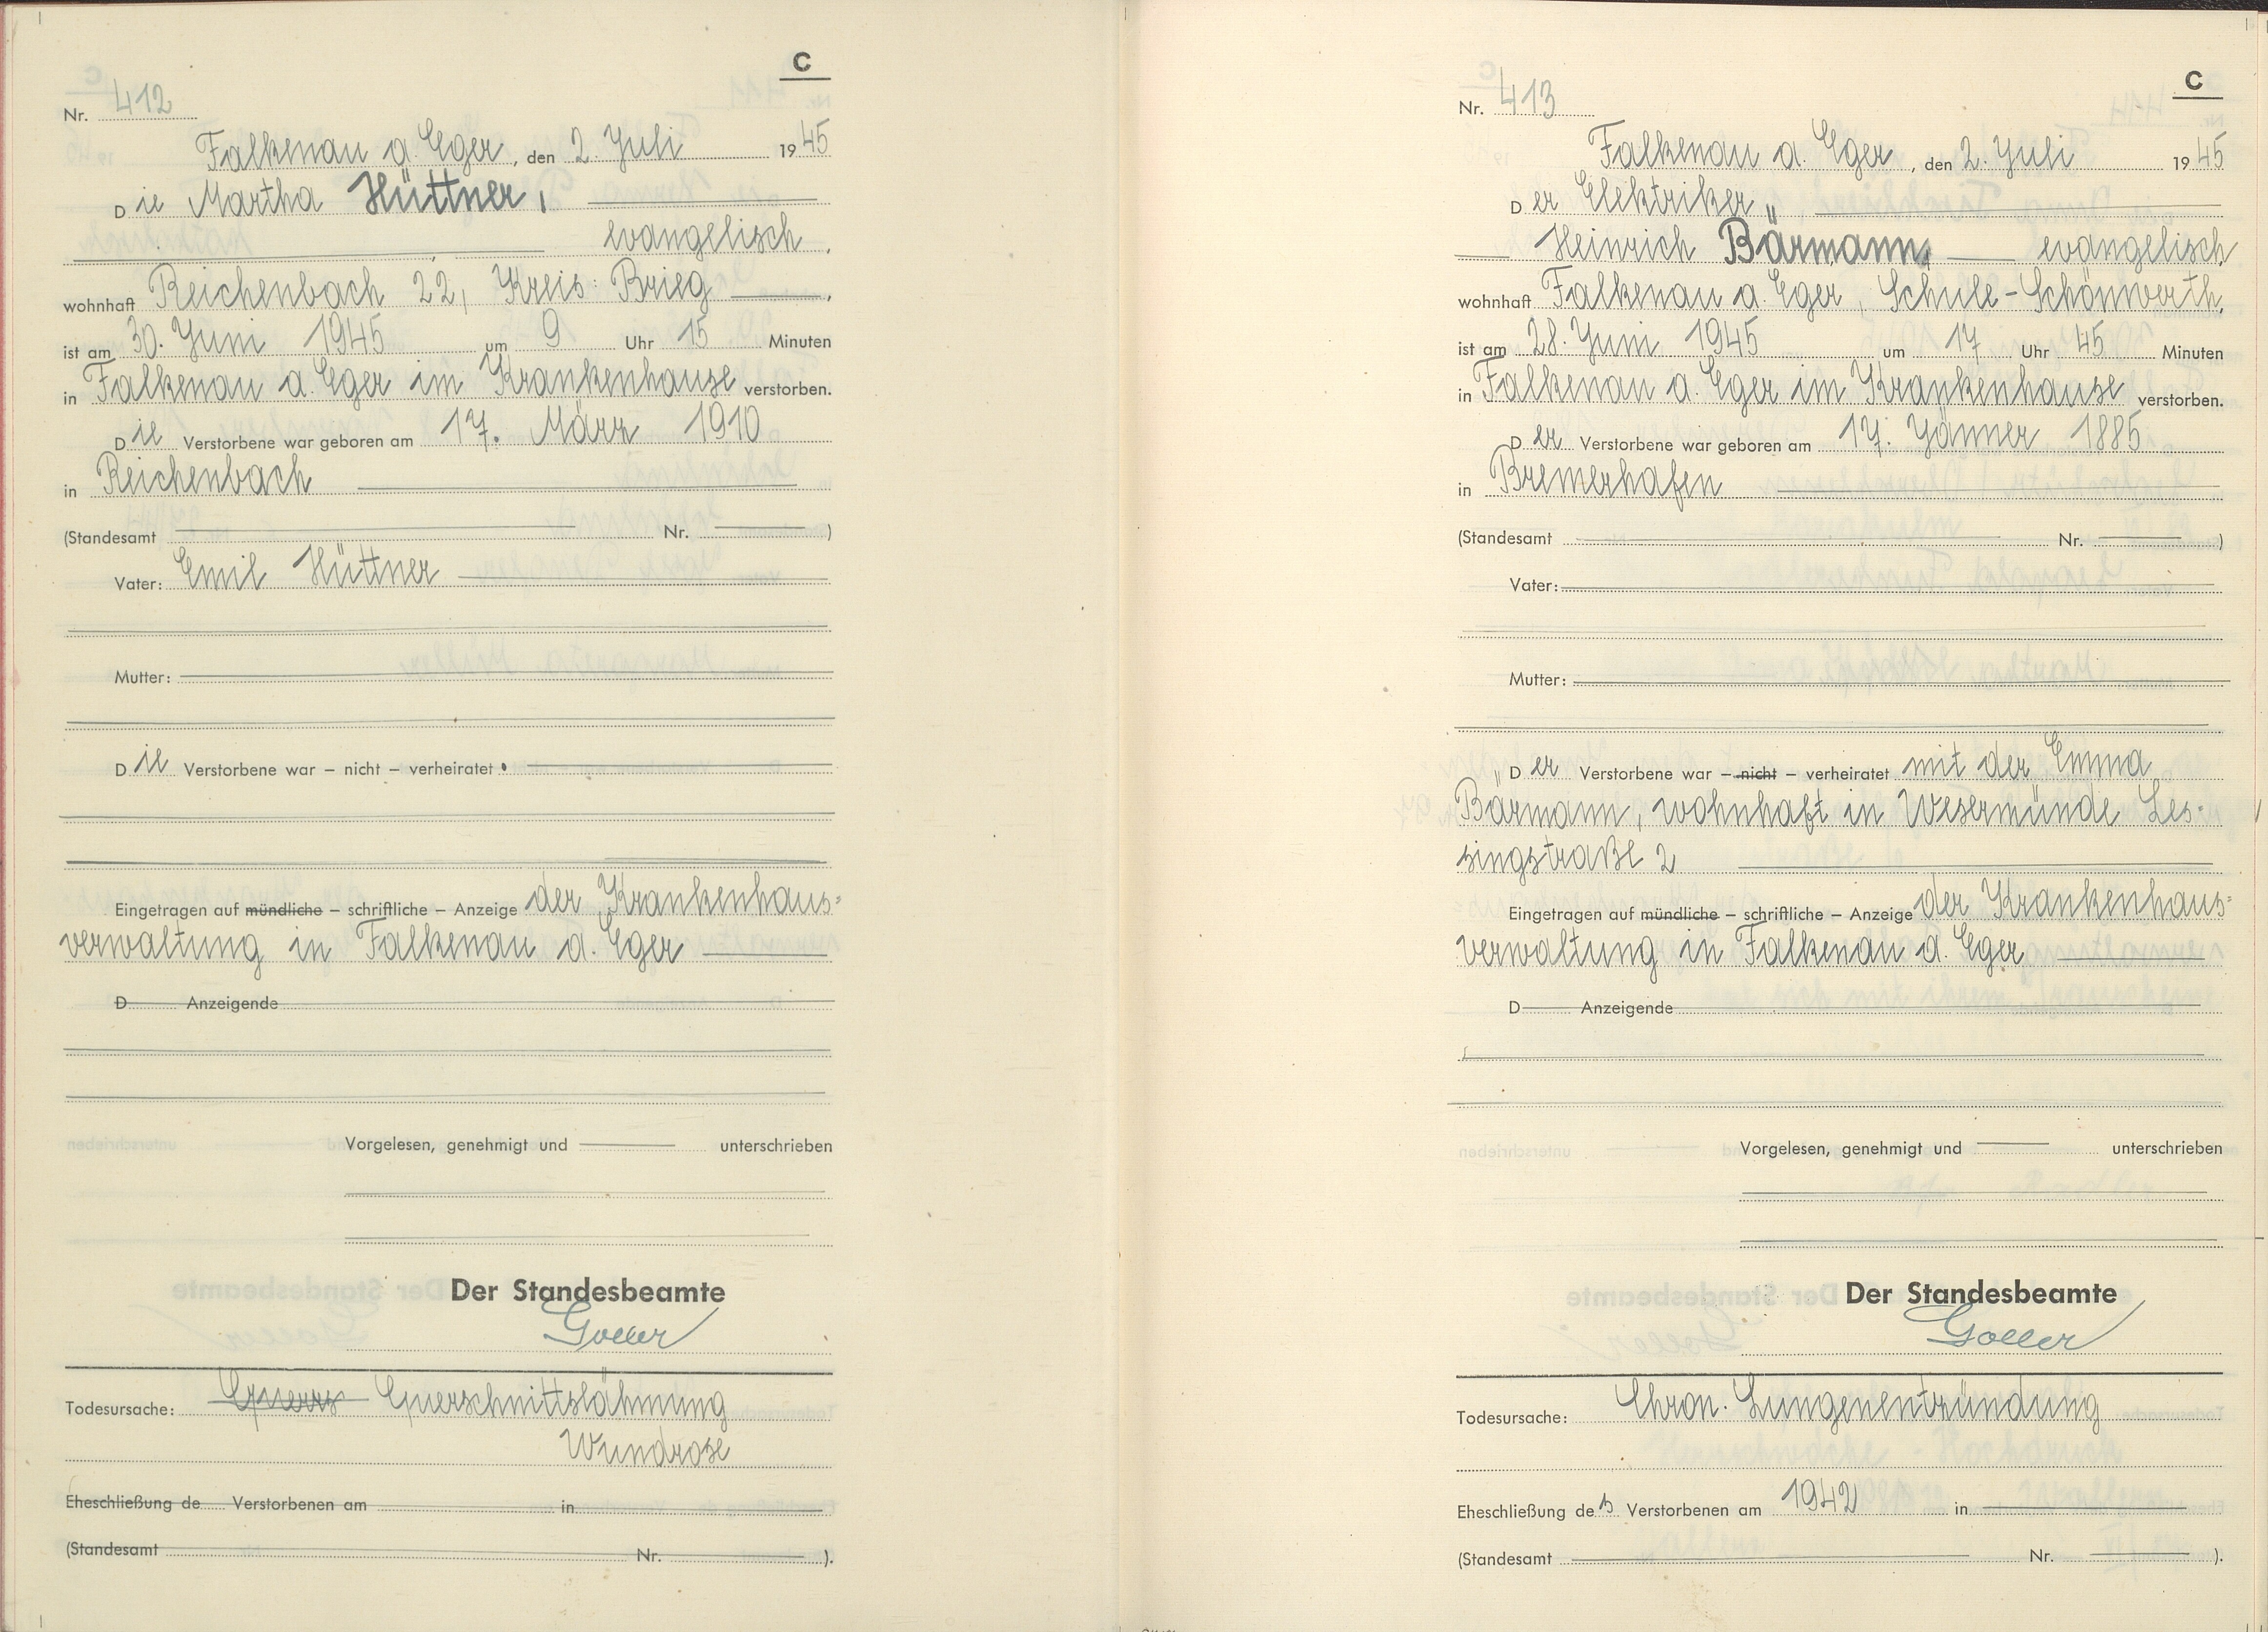 C
Nr. 412
Falkenau a. Eger, den 2. Juli 1945
Die Martha Hüttner,
evangelisch,
wohnhaft Reichenbach 22, Kreis: Brieg,
ist am 30. Juni 1945 um 9 Uhr 15 Minuten
in Falkenau a. Eger im Krankenhause verstorben.
Die Verstorbene war geboren am 17. März 1910
in Reichenbach
(Standesamt Nr. )
Vater: Emil Hüttner
Mutter:
Die Verstorbene war – nicht – verheiratet.
Eingetragen auf mündliche – schriftliche – Anzeige der Krankenhaus=
verwaltung in Falkenau a. Eger
D Anzeigende
Vorgelesen, genehmigt und unterschrieben
Der Standesbeamte
Goller
Todesursache: Querschnittslähmung
Wundrose
Eheschließung de Verstorbenen am in
(Standesamt Nr. ).
C
Nr. 413
Falkenau a. Eger, den 2. Juli 1945
Der Elektriker
Heinrich Bärmann, evangelisch
wohnhaft Falkenau a. Eger, Schule-Schönwerth,
ist am 28. Juni 1945 um 17 Uhr 45 Minuten
in Falkenau a. Eger im Krankenhause verstorben.
Der Verstorbene war geboren am 17. Jänner 1885
in Bremerhafen
(Standesamt Nr. )
Vater:
Mutter:
Der Verstorbene war – nicht – verheiratet mit der Emma
Bärmann, wohnhaft in Wesermünde Les-
singstraße 2
Eingetragen auf mündliche – schriftliche – Anzeige der Krankenhaus=
verwaltung in Falkenau a. Eger
D Anzeigende
Vorgelesen, genehmigt und unterschrieben
Der Standesbeamte
Goller
Todesursache: Chron. Lungenentzündung
Eheschließung des Verstorbenen am 1942 in
(Standesamt Nr. ).